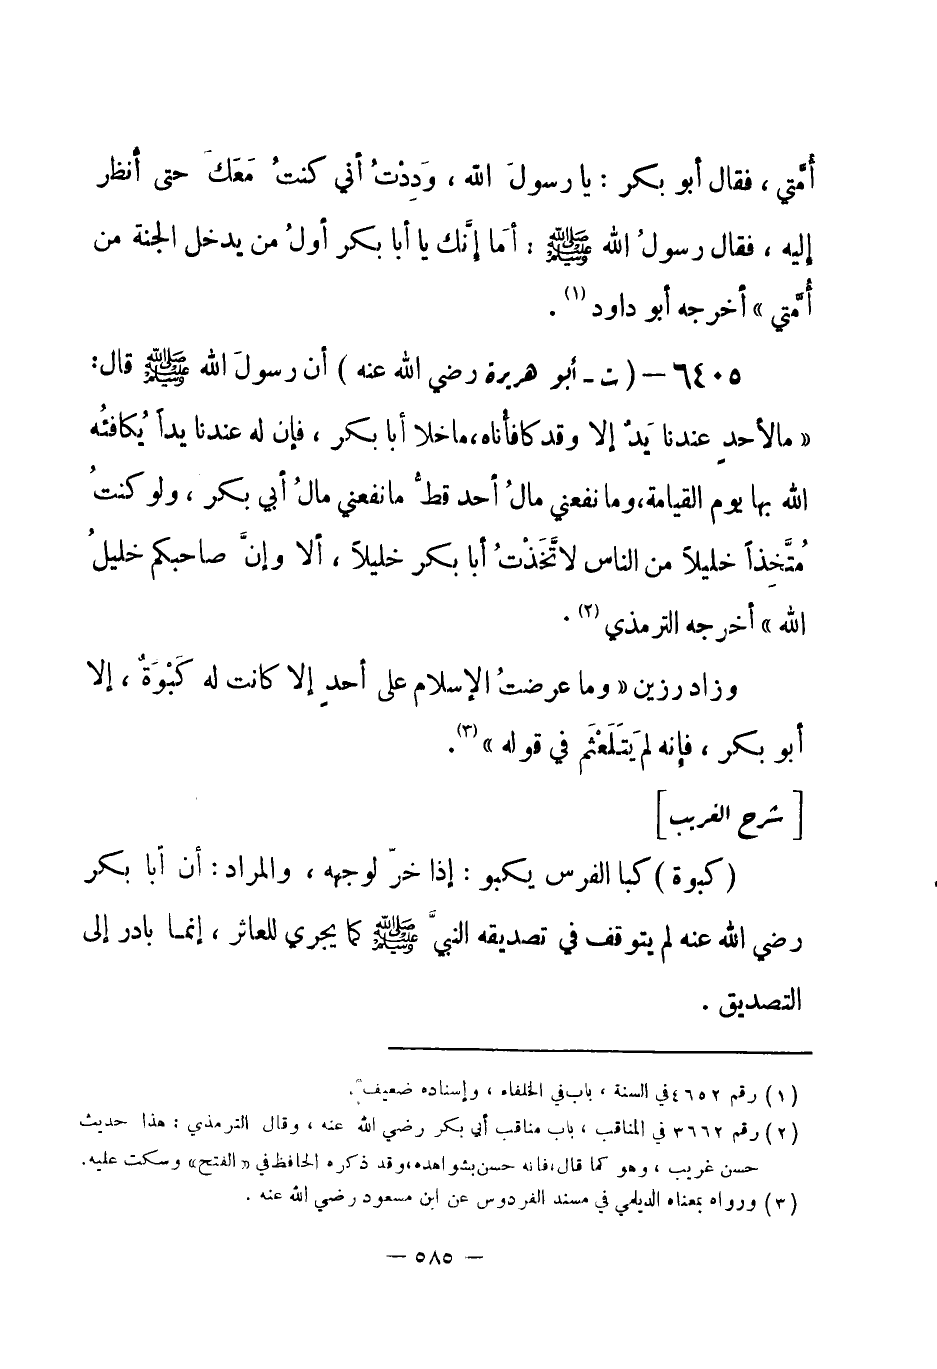 أُمَّتي ، فقال أبو بكر : يا رسولَ الله ، وَدِدْتُ أني كنتُ مَعَكَ حتى أنظر
إليه ، فقال رسولُ الله ﷺ : أَمَا إنَّك يا أبا بكر أولُ من يدخل الجنة من
أُمَّتي » أخرجه أبو داود (١) .
٦٤٠٥ – ( ت - أبو هريرة رضي الله عنه ) أن رسولَ الله ﷺ قال:
« مالأحدٍ عندنا يَدٌ إلا وقد كافأْناه، ماخلا أبا بكر ، فإن له عندنا يداً يُكافئُه
الله بها يوم القيامة، وما نفعني مالُ أحد قطُّ مانفعني مالُ أبي بكر ، ولو كنتُ
مُتَّخِذاً خليلاً من الناس لاتَّخَذْتُ أبا بكر خليلاً ، ألا وإنَّ صاحبكم خليلُ
الله » أخرجه الترمذي (٢) .
وزاد رزين « وما عرضتُ الإسلام على أحدٍ إلا كانت له كَبْوَةٌ ، إلا
أبو بكر ، فإنه لم يَتَلَعْثَم في قوله » (٣).
[ شرح الغريب ]
( كبوة ) كبا الفرس يكبو : إذا خرّ لوجهه ، والمراد : أن أبا بكر
رضي الله عنه لم يتوقف في تصديقه النبيَّ ﷺ كما يجري للعاثر ، إنما بادر إلى
التصديق .
(١) رقم ٤٦٥٢ في السنة ، باب في الخلفاء ، وإسناده ضعيف .
(٢) رقم ٣٦٦٢ في المناقب ، باب مناقب أبي بكر رضي الله عنه ، وقال الترمذي : هذا حديث
حسن غريب ، وهو كما قال، فانه حسن بشواهده، وقد ذكره الحافظ في « الفتح » وسكت عليه.
(٣) ورواه بمعناه الديلمي في مسند الفردوس عن ابن مسعود رضي الله عنه .
— ٥٨٥ —